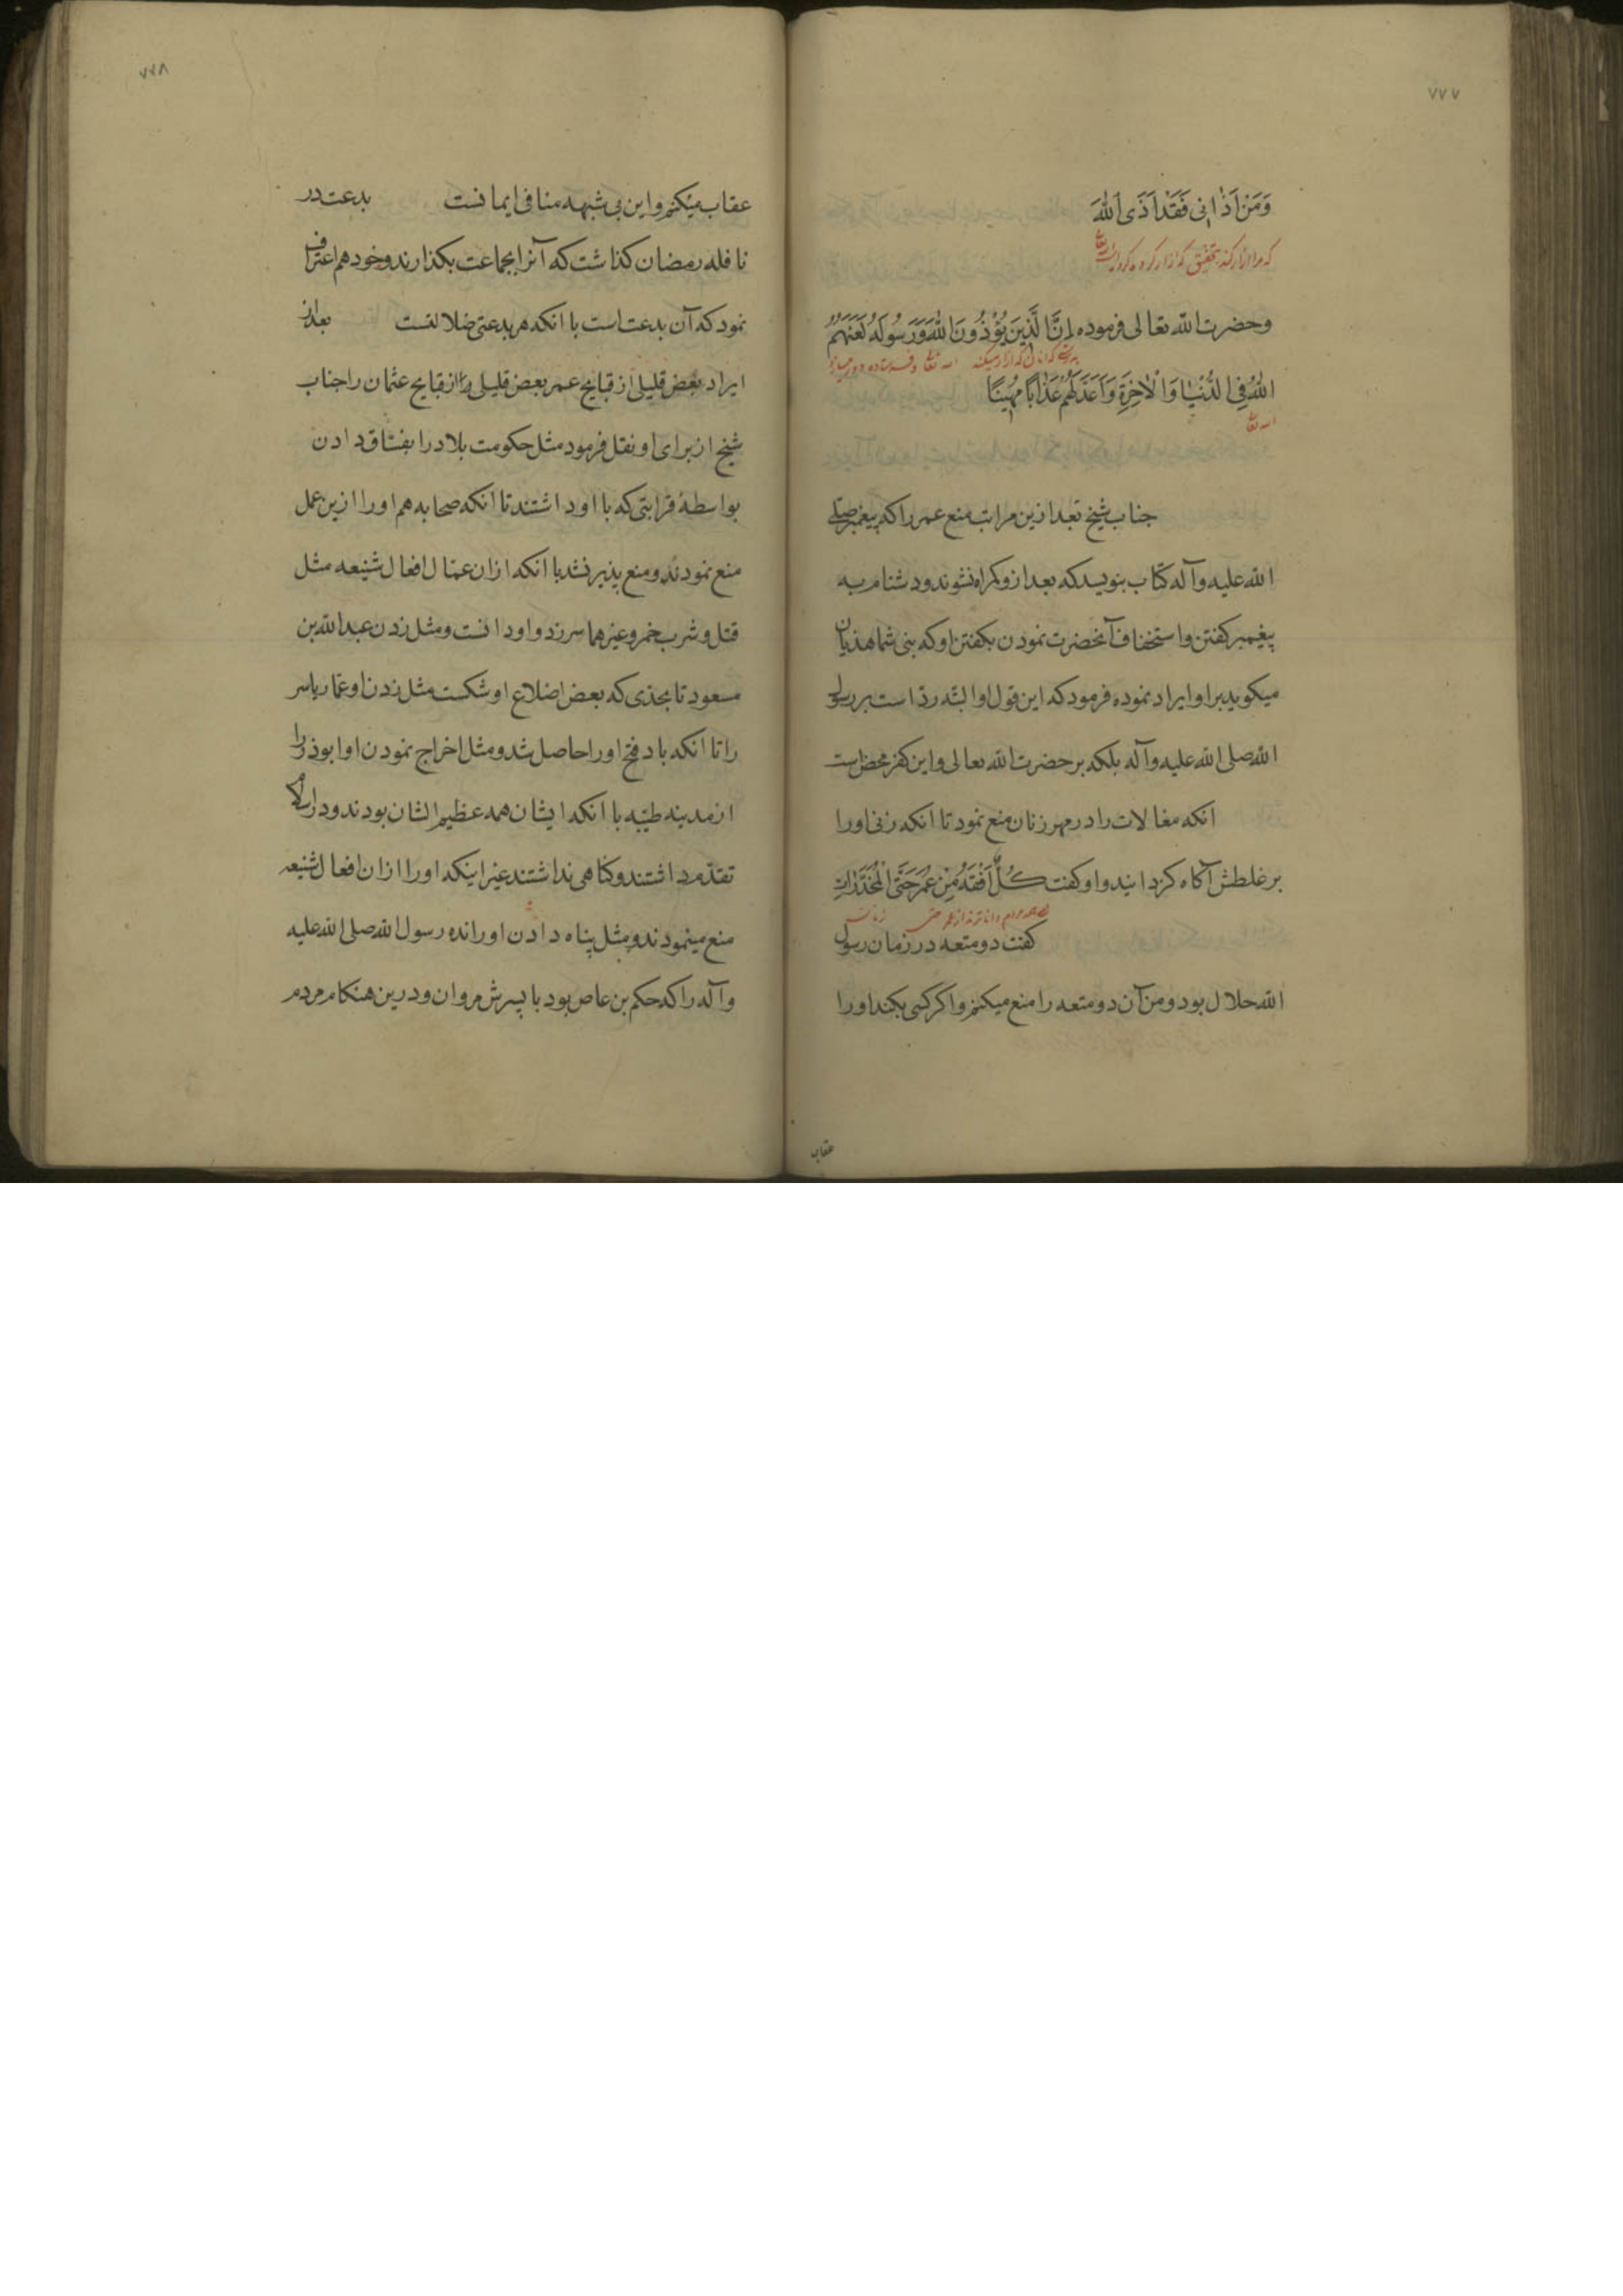 ٧٧٧
وَمَنْ اَذٰانِی فَقَدْ اَذَی اللّٰهَ
که مرا آزار کند بتحقیق که آزار کرده
وحضرت الله تعالی فرموده اِنَّ الَّذِینَ یُؤْذُونَ اللّٰهَ وَرَسُولَهُ لَعَنَهُمُ
بدرستی که آنان که آزار میکنند الله تعالی و فرستاده
اللّٰهُ فِی الدُّنْیٰا وَالْاٰخِرَةِ وَاَعَدَّ لَهُمْ عَذٰابًا مُهِینًا
الله تعالی
جناب شیخ بعد ازین مراتب منع عمر را که پیغمبر صلی
الله علیه وآله کتاب بنویسد که بعد ازو کمراه نشوند ودشنام به
پیغمبر کفتن واستخفاف آنحضرت نمودن بکفتن او که نبی شما هذیان
میکوید براو ایراد نموده فرمود که این قول او البته رد است بر رسول
الله صلی الله علیه وآله بلکه بر حضرت الله تعالی واین کفر محض است
انکه مغالات را در مهر زنان منع نمود تا انکه زنی اورا
بر غلطش آکاه کردانید واو کفت کُلٌّ اَفْقَهُ مِنْ عُمَرَ حَتَّی الْمُخَدَّرٰاتِ
همه مردم داناترند از عمر حتی زنان
کفت دو متعه در زمان رسول
الله حلال بود ومن آن دو متعه را منع میکنم واکر کسی بکند اورا
عقاب
٧٧٨
عقاب میکنم واین بی شبهه منافی ایمانست بدعت در
نافله رمضان کذاشت که آنرا بجماعت بکذارند وخود هم اعتراف
نمود که آن بدعت است با انکه هر بدعتی ضلالتست بعد از
ایراد بعض قلیلی از قبایح عمر بعض قلیلی را از قبایح عثمان را جناب
شیخ از برای او نقل فرمود مثل حکومت بلاد را بفساق دادن
بواسطهٔ قرابتی که با او داشتند تا انکه صحابه هم اورا ازین عمل
منع نمودند ومنع پذیر نشد با انکه ازان عمال افعال شنیعه مثل
قتل وشرب خمر وغیرهما سرزد واو دانست ومثل زدن عبدالله بن
مسعود تا بحدی که بعض اضلاع او شکست مثل زدن او عمار یاسر
را تا انکه باد فتح اورا حاصل شد ومثل اخراج نمودن او ابوذر را
از مدینه طیبه با انکه ایشان همه عظیم الشان بودند ودر اسلام
تقدم داشتند وکناهی نداشتند غیر اینکه اورا ازان افعال شنیعه
منع مینمودند ومثل پناه دادن او رانده رسول الله صلی الله علیه
وآله را که حکم بن عاص بود با پسرش مروان ودرین هنکام مردم